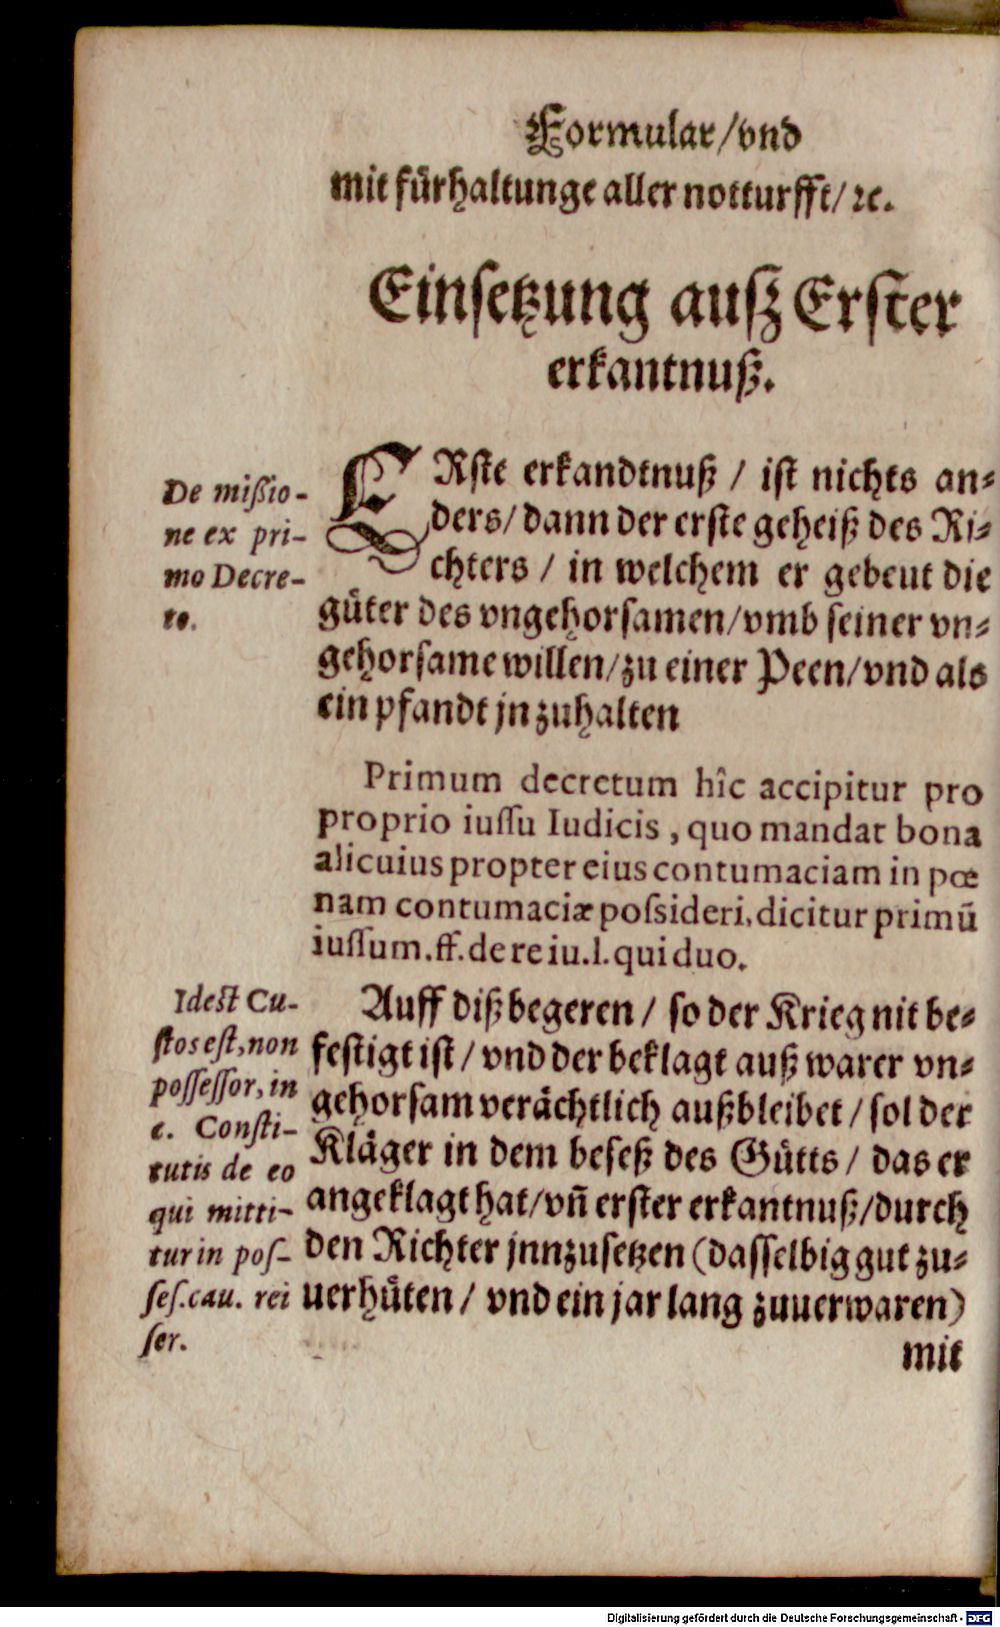 Formular/vnd
mit fürhaltunge aller notturfft/ ꝛc.
Einsetzung auß Erster
erkantnuß.
De mißio-
ne ex pri-
mo Decre-
to.
ERste erkandtnuß / ist nichts an-
ders/ dann der erste geheiß des Ri-
chters / in welchem er gebeut die
güter des vngehorsamen/vmb seiner vn-
gehorsame willen/zu einer Peen/vnd als
ein pfandt jn zuhalten
Primum decretum hîc accipitur pro
proprio iussu Iudicis, quo mandat bona
alicuius propter eius contumaciam in pœ
nam contumaciæ possideri, dicitur primũ
iussum. ff. de re iu. l. qui duo.
Idest Cu-
stos est, non
possessor, in
c. Consti-
tutis de eo
qui mitti-
tur in pos-
ses. cau. rei
ser.
Auff diß begeren / so der Krieg nit be-
festigt ist / vnd der beklagt auß warer vn-
gehorsam verächtlich außbleibet / sol der
Kläger in dem beseß des Gütts / das er
angeklagt hat/vñ erster erkantnuß/durch
den Richter jnnzusetzen (dasselbig gut zu-
uerhüten / vnd ein jar lang zuuerwaren)
mit
Digitalisierung gefördert durch die Deutsche Forschungsgemeinschaft - DFG